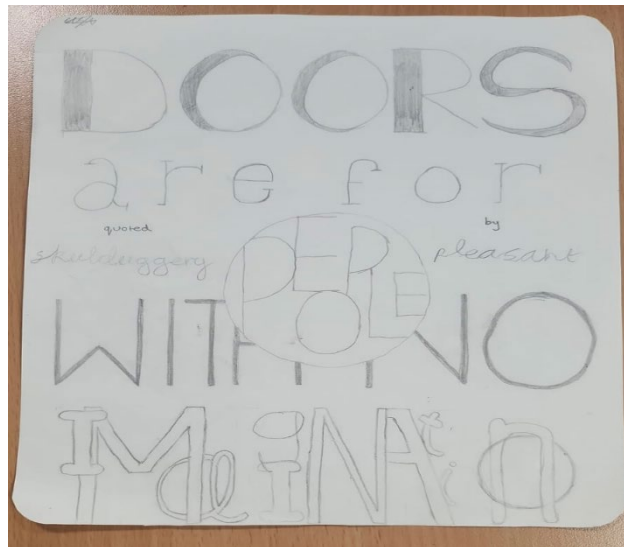 DOORS
are for
quoted by
skulduggery pleasant
PEOPLE
WITH NO
IMAGINATiON